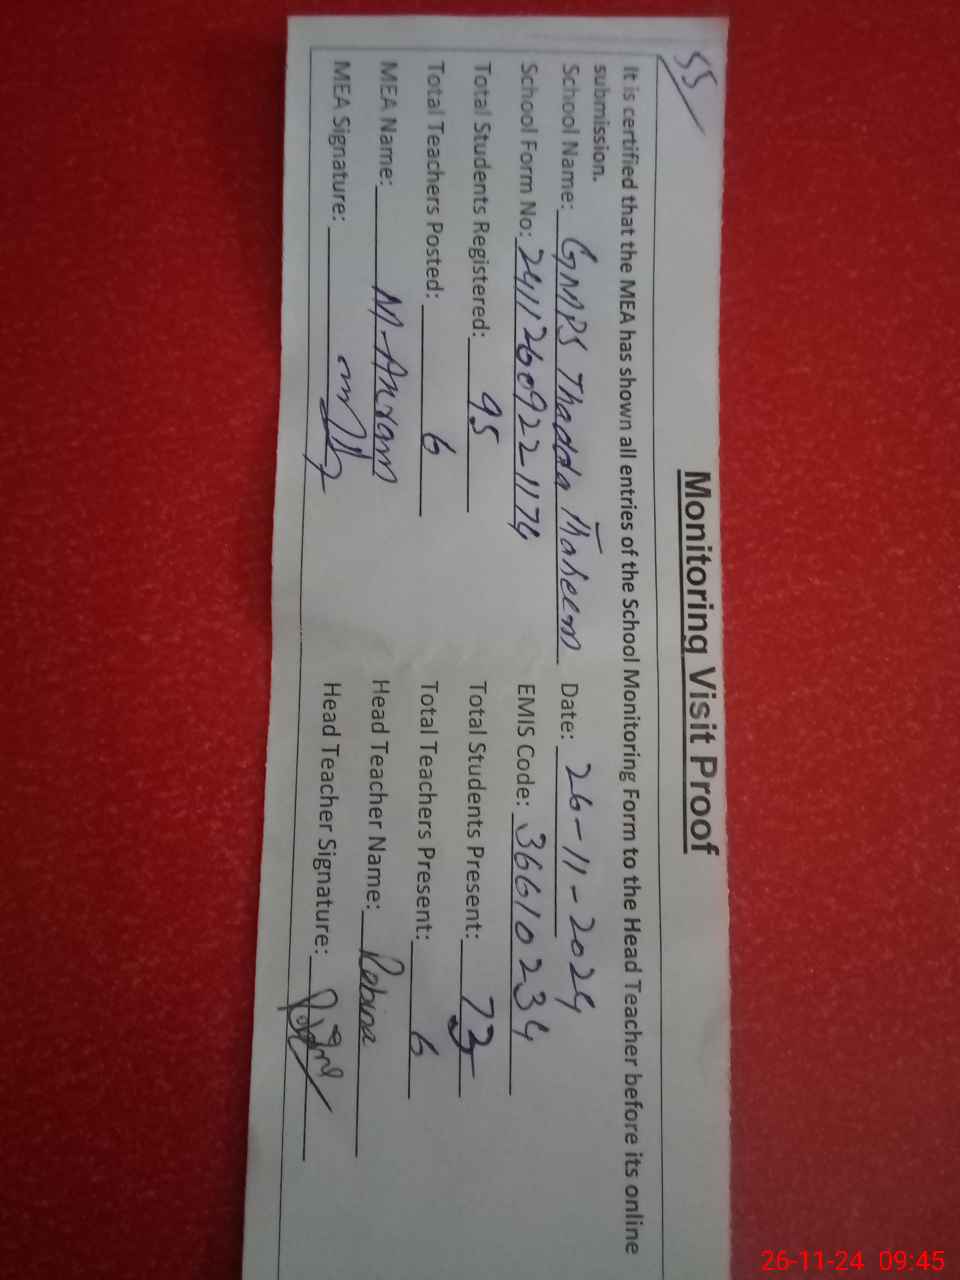 55/
Monitoring Visit Proof
It is certified that the MEA has shown all entries of the School Monitoring Form to the Head Teacher before its online
submission.
School Name: GMPS Thadda Thakeem Date: 26-11-2024
School Form No: 24112609221174 EMIS Code: 36610234
Total Students Registered: 95 Total Students Present: 73
Total Teachers Posted: 6 Total Teachers Present: 6
MEA Name: M-Akram Head Teacher Name: Robina
MEA Signature: Head Teacher Signature:
26-11-24 09:45